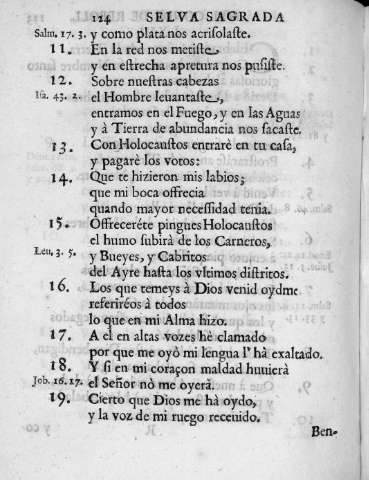 124 SELVA SAGRADA
Salm. 17. 3. y como plata nos acrisolaste.
11. En la red nos metiste,
y en estrecha apretura nos pusiste.
12. Sobre nuestras cabezas
Isa. 43. 2. el Hombre leuantaste,
entramos en el Fuego, y en las Aguas
y à Tierra de abundancia nos sacaste.
13. Con Holocaustos entrarè en tu casa,
y pagarè los votos:
14. Que te hizieron mis labios;
que mi boca offrecia
quando mayor necessidad tenia.
15. Offrecerête pingues Holocaustos
el humo subirà de los Carneros,
Leu. 3. 5. y Bueyes, y Cabritos
del Ayre hasta los vltimos distritos.
16. Los que temeys à Dios venid oydme
referirèos à todos
lo que en mi Alma hizo.
17. A el en altas vozes hè clamado
por que me oyò mi lengua l' hà exaltado.
18. Y si en mi coraçon maldad huuierà
Job. 16. 17. el Señor nò me oyerà.
19. Cierto que Dios me hà oydo,
y la voz de mi ruego receuido.
Ben-